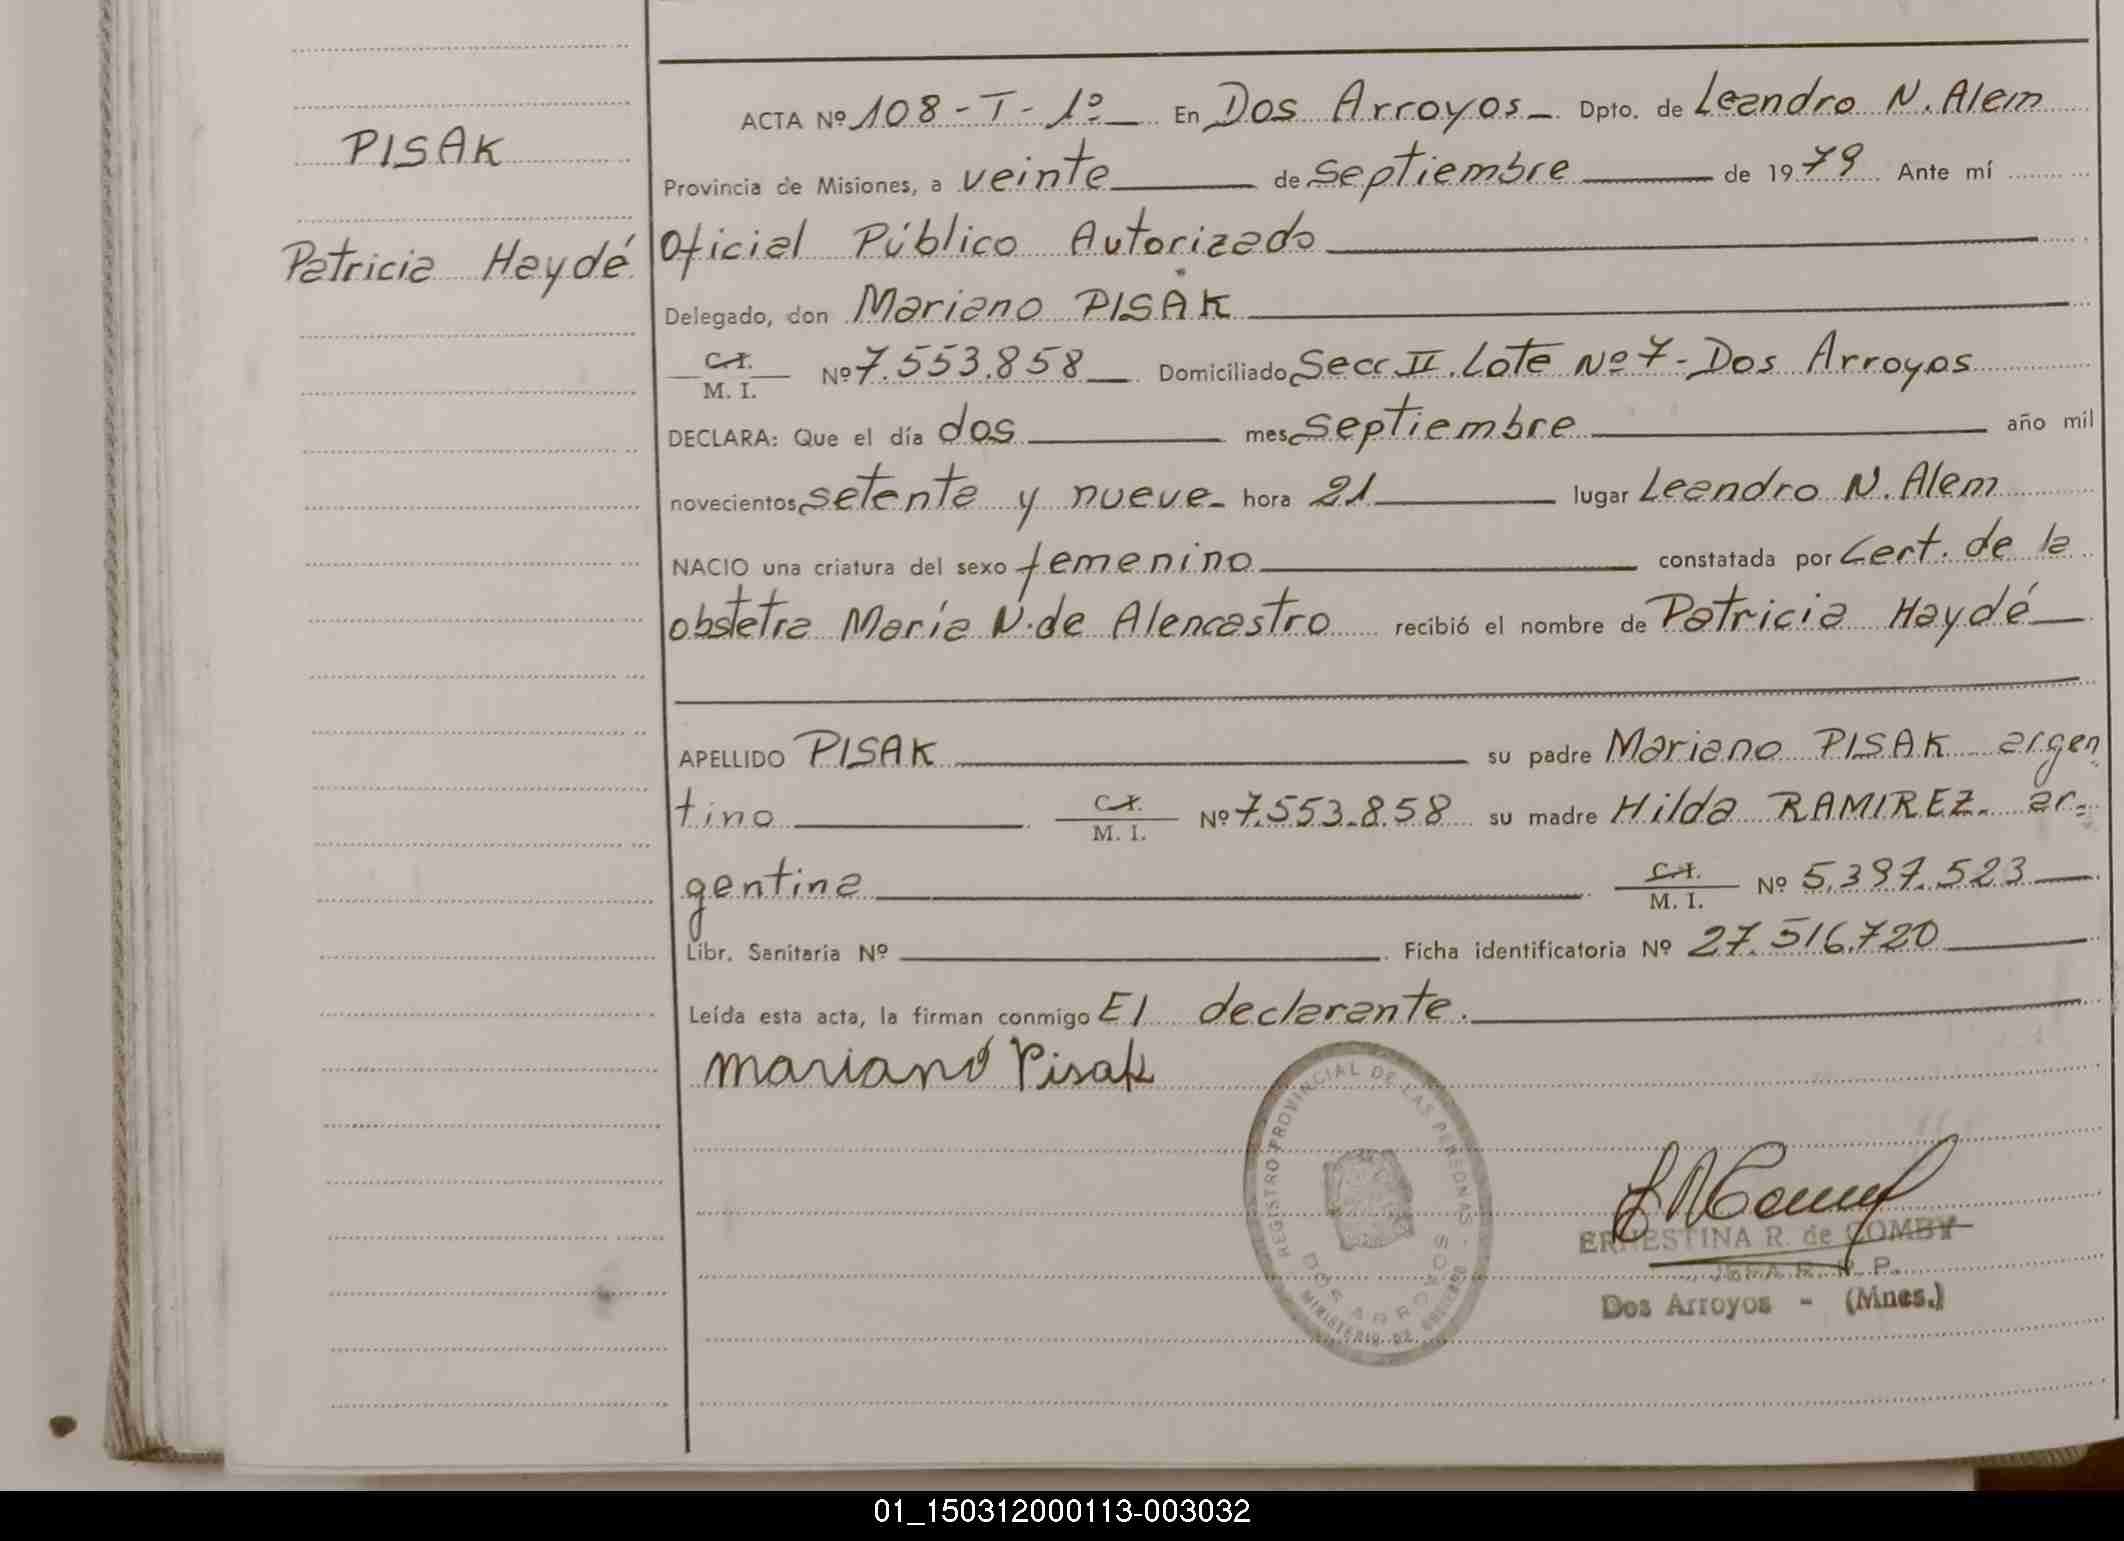 PISAK
Patricia Haydé
ACTA Nº 108-T-1º En Dos Arroyos Dpto. de Leandro N. Alem
Provincia de Misiones, a veinte de septiembre de 1979 Ante mí
Oficial Público Autorizado
Delegado, don Mariano PISAK
C.I.
M. I. Nº 7.553.858 Domiciliado Secc. II. Lote Nº 7 - Dos Arroyos
DECLARA: Que el día dos mes septiembre año mil
novecientos setenta y nueve hora 21 lugar Leandro N. Alem
NACIO una criatura del sexo femenino constatada por Cert. de la
obstetra María N. de Alencastro recibió el nombre de Patricia Haydé
APELLIDO PISAK su padre Mariano PISAK argen
tino C.I. M. I. Nº 7.553.858 su madre Hilda RAMIREZ. ar=
gentina C.I. M. I. Nº 5.397.523
Libr. Sanitaria Nº Ficha identificatoria Nº 27.516.720
Leída esta acta, la firman conmigo El declarante.
mariano Pisak
REGISTRO PROVINCIAL DE LAS PERSONAS -
DOS ARROYOS
MINISTERIO DE GOBIERNO
ERNESTINA R. de COMBY
JEFA R. P. P.
Dos Arroyos - (Mnes.)
01_150312000113-003032